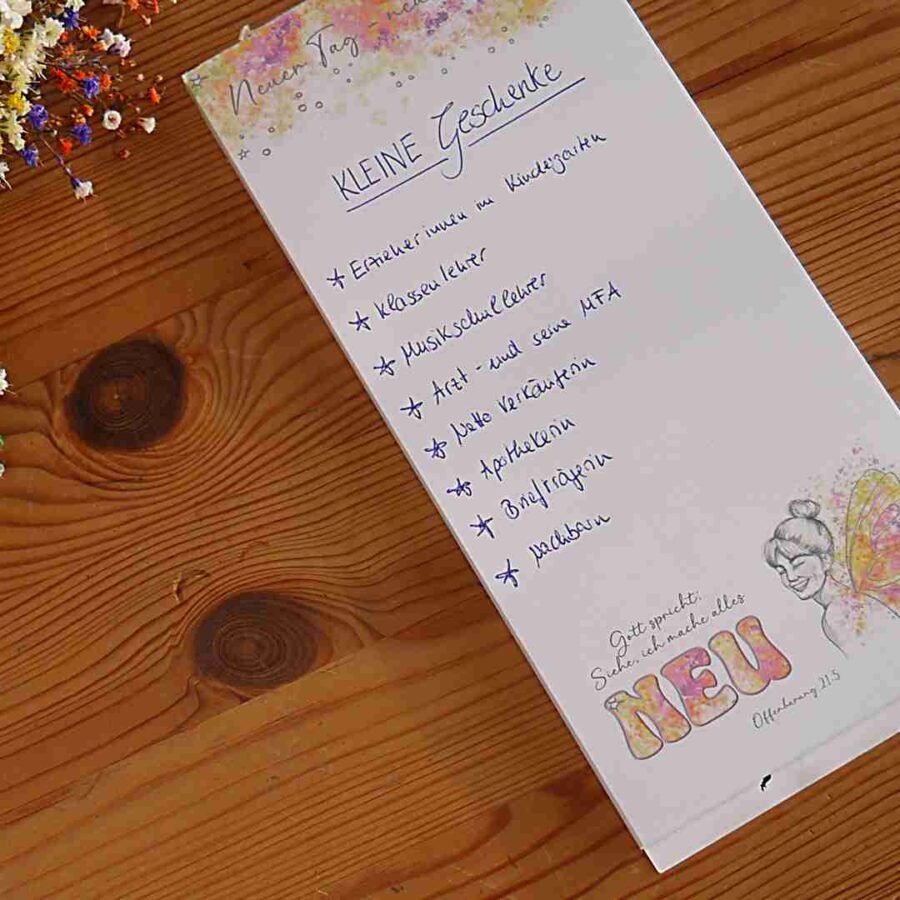 Neuer Tag - neu
KLEINE Geschenke
Erzieherinnen im Kindergarten
Klassenlehrer
Musikschullehrer
Arzt - und seine MFA
Nette Verkäuferin
Apothekerin
Briefträgerin
Nachbarn
Gott spricht:
Siehe, ich mache alles
NEU
Offenbarung 21.5